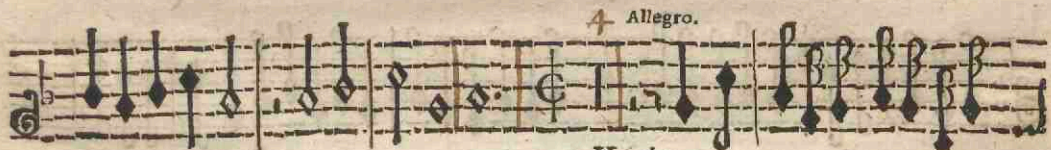 4 Allegro.